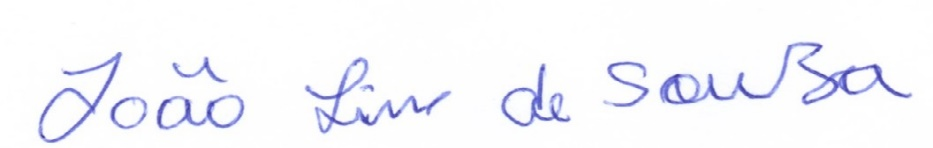 João Lima de Souza